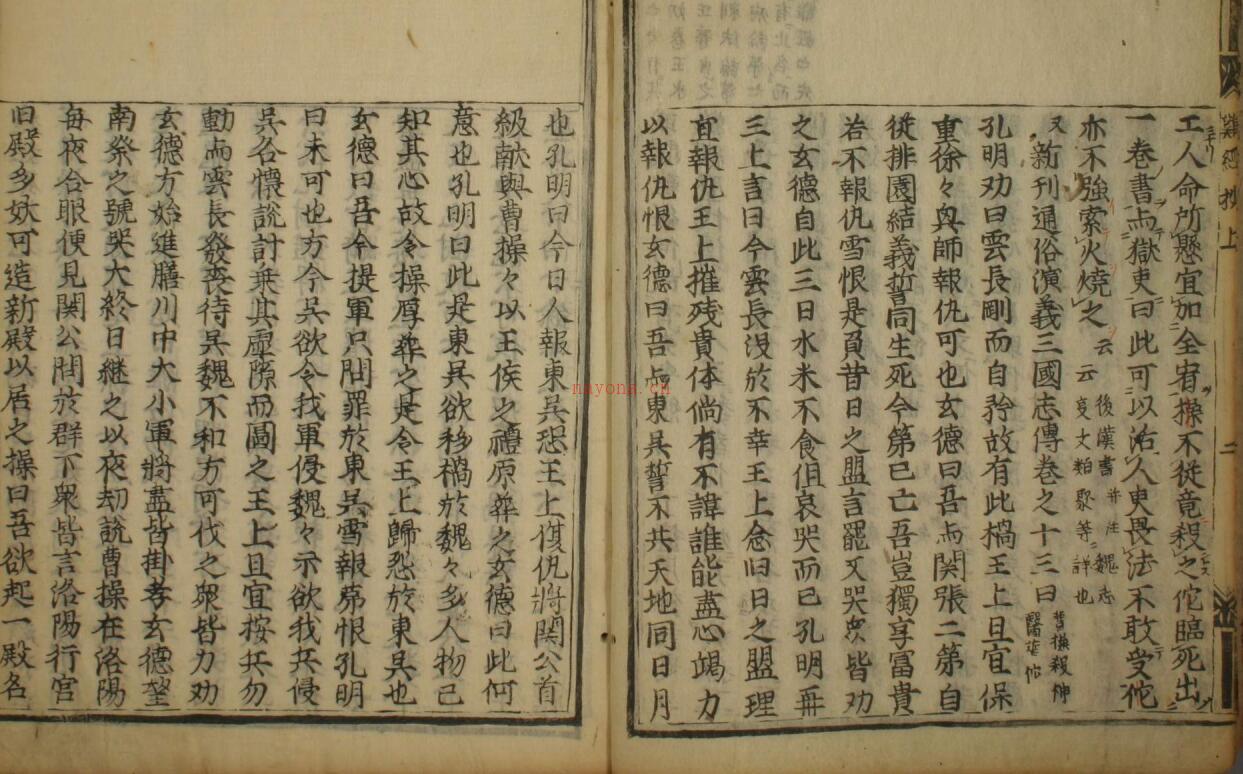 難經抄上
二
工人命所懸宜加全宥操不從竟殺之佗臨死出
一卷書与獄吏曰此可以活人吏畏法不敢受佗
亦不強索火燒之云云 後漢書并注魏志
事文類聚等詳也
又新刊通俗演義三國志傳卷之十三曰 曹操殺神
醫華佗
孔明劝曰雲長剛而自矜故有此禍王上且宜保
重徐々與師報仇可也玄德曰吾与関張二弟自
從排園結義誓同生死今第已亡吾豈獨享富貴
若不報仇雪恨是負昔日之盟言罷又哭衆皆劝
之玄德自此三日水米不食但哀哭而已孔明再
三上言曰今雲長没於不幸王上念旧日之盟理
宜報仇王上摧残貴体倘有不諱誰能盡心竭力
以報仇恨玄德曰吾与東吳誓不共天地同日月
也孔明曰今日人報東吳恐王上復仇將関公首
級献與曹操々以王侯之禮原葬之玄德曰此何
意也孔明曰此是東吳欲移禍於魏々多人物已
知其心故令操厚葬之是令王上歸怨於東吳也
玄德曰吾今提軍只問罪於東吳雪報弟恨孔明
曰未可也方今吳欲令我軍侵魏々亦欲我兵侵
吳各懷説計乗其虚隙而圖之王上且宜按兵勿
動而雲長發喪待吳魏不和方可伐之衆皆力劝
玄德方始進膳川中大小軍將盡皆掛孝玄德望
南祭之號哭大終日継之以夜却說曹操在洛陽
每夜合眼便見関公問於群下衆皆言洛陽行宮
旧殿多妖可造新殿以居之操曰吾欲起一殿名
nayona.cn